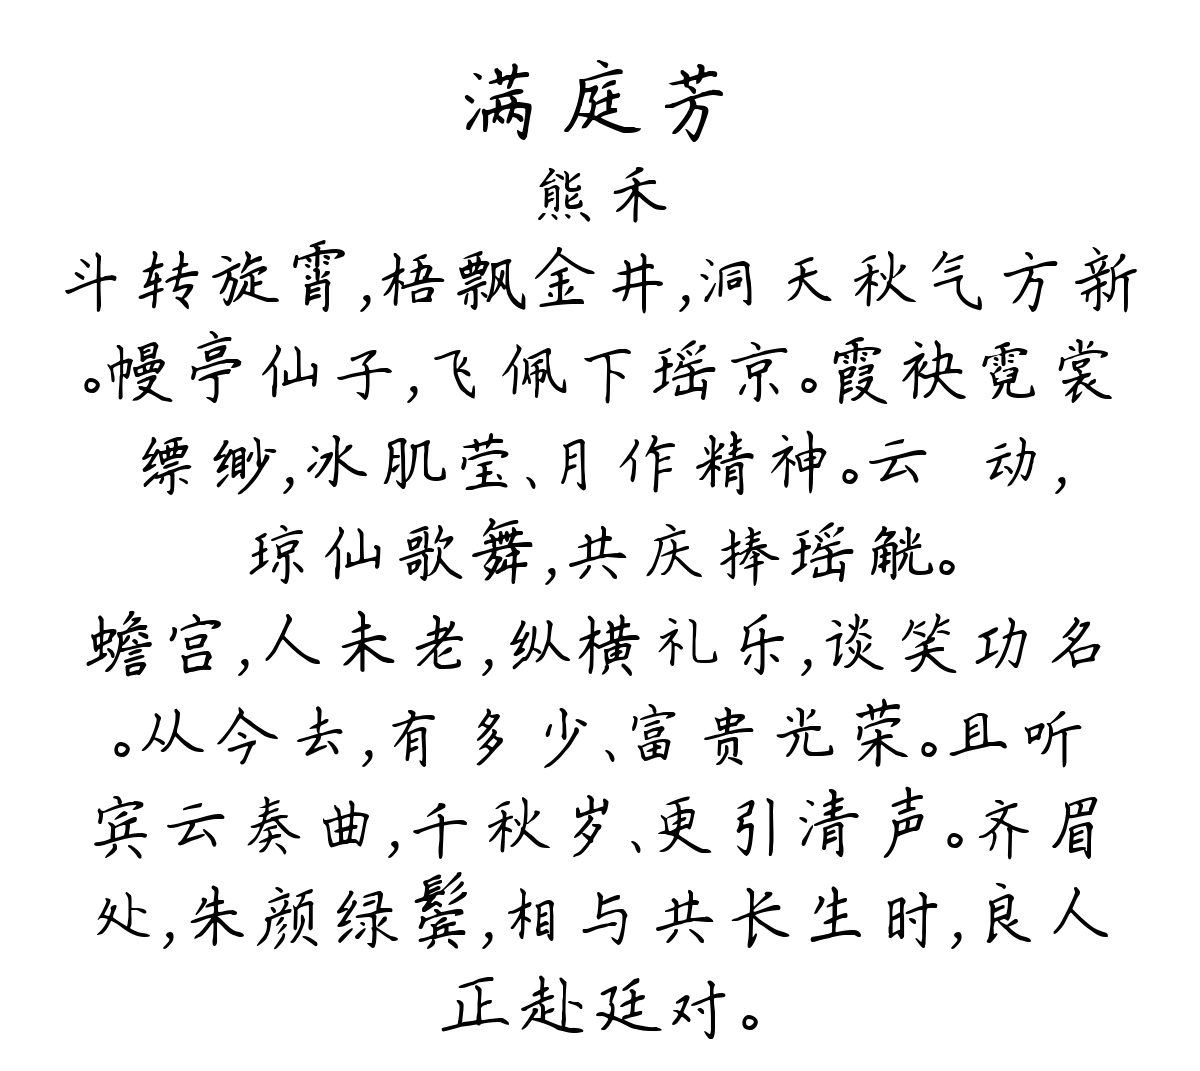 满庭芳
熊禾
斗转旋霄,梧飘金井,洞天秋气方新
。幔亭仙子,飞佩下瑶京。霞袂霓裳
缥缈,冰肌莹、月作精神。云 动,
琼仙歌舞,共庆捧瑶觥。
蟾宫,人未老,纵横礼乐,谈笑功名
。从今去,有多少、富贵光荣。且听
宾云奏曲,千秋岁、更引清声。齐眉
处,朱颜绿鬓,相与共长生时,良人
正赴廷对。